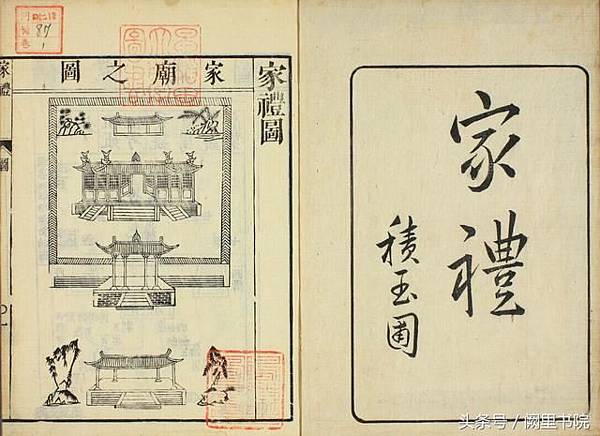 家禮
積玉圃
家禮圖
家廟之圖
家禮
圖
87
1
头条号 / 阙里书院